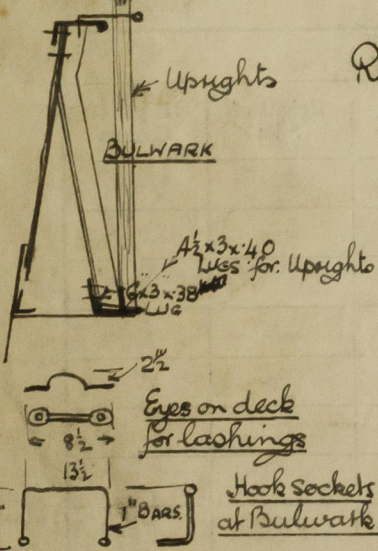 R
Uprights
BULWARK
4½ x 3 x .40
LUGS for Uprights
6 x 3 x .38
LUG
2½"
Eyes on deck
8½
for lashings
13½
Hook Sockets
1" BARS.
at Bulwark